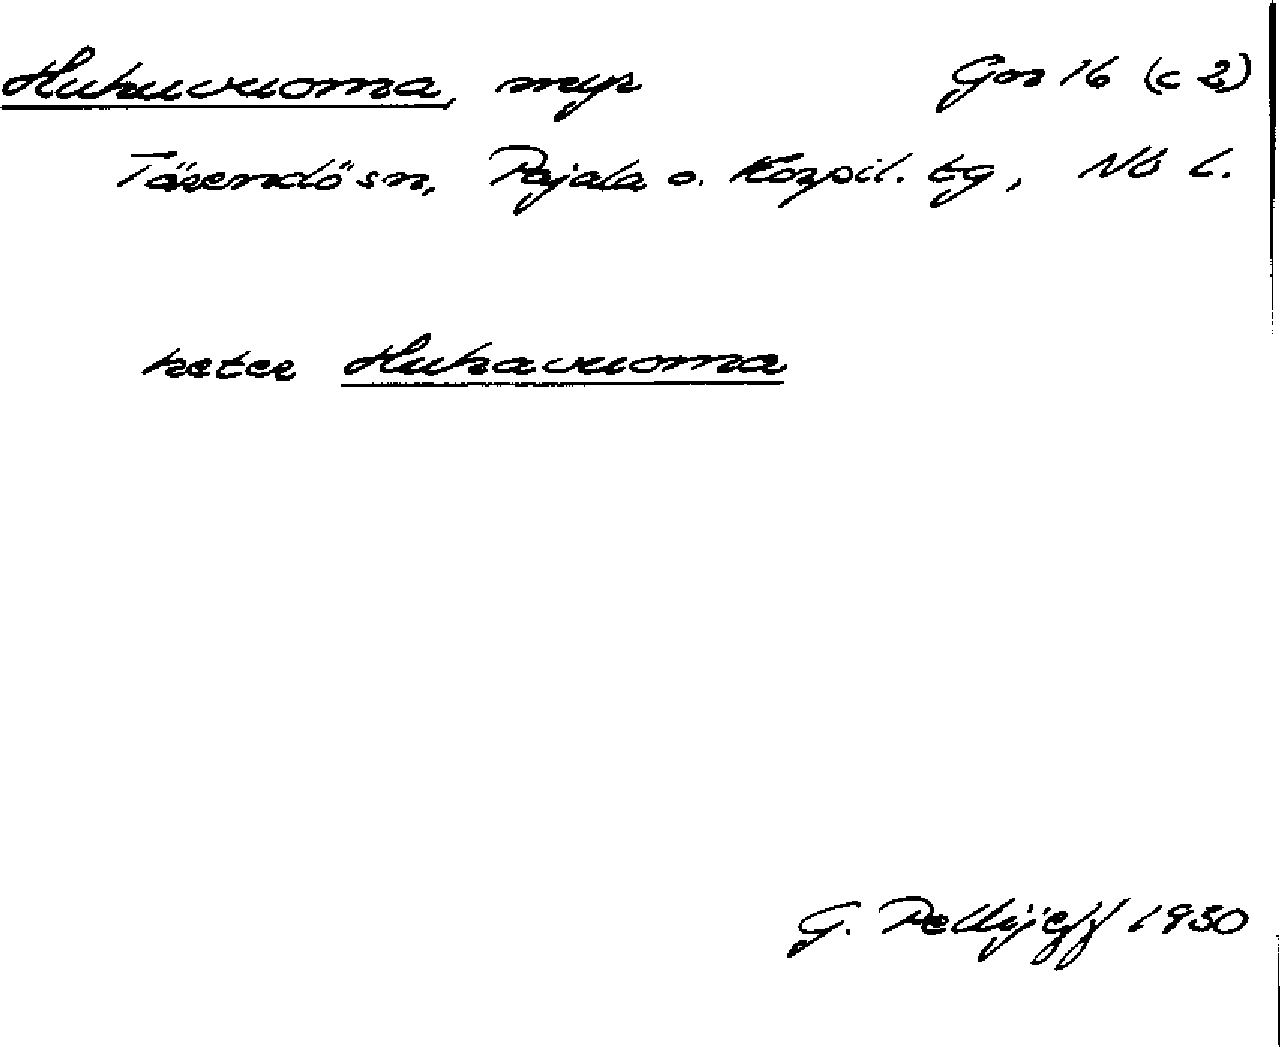 Hukuvuoma, myr Gnr 16 (c 2)
Tärendö sn, Pajala o. Korpil. tg, Nb l.
heter Hukavuoma
G. Pellijeff 1950